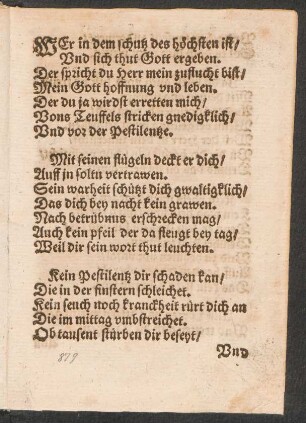 WEr in dem schutz des höchsten ist/
Vnd sich thut Gott ergeben.
Der spricht du Herr mein zuflucht bist/
Mein Gott hoffnung vnd leben.
Der du ja wirdst erretten mich/
Vons Teuffels stricken gnedigklich/
Vnd vor der Pestilentze.
Mit seinen flügeln deckt er dich/
Auff jn soltu vertrawen.
Sein warheit schützt dich gwaltigklich/
Das dich bey nacht kein grawen.
Nach betrübnus erschrecken mag/
Auch kein pfeil der da fleugt bey tag/
Weil dir sein wort thut leuchten.
Kein Pestilentz dir schaden kan/
Die in der finstern schleichet.
Kein seuch noch kranckheit rürt dich an
Die im mittag vmbstreichet.
Ob tausent stürben dir beseyt/
Vnd
879